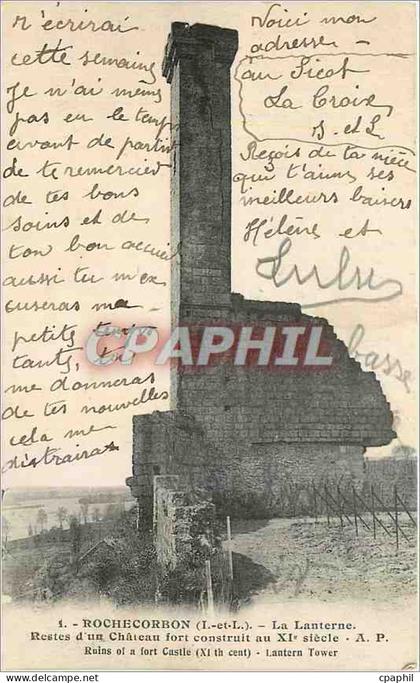 n'écrirai
cette semaine
Je n'ai même
pas eu le temps
avant de partir
de te remercier
de tes bons
soins et de
ton bon accueil
aussi tu m'ex
cuseras ma
petite
tante, tu
me donneras
de tes nouvelles
cela me
distraira
Voici mon
adresse -
au Picot
La Croix
I-et-L
Reçois de ta nièce
qui t'aime ses
meilleurs baisers
Hélène et
Lulu
CARPHIL
1. - ROCHECORBON (I.-et-L.) - La Lanterne.
Restes d'un Château fort construit au XIe siècle - A. P.
Ruins of a fort Castle (XI th cent) - Lantern Tower
www.cpaphil.com
cpaphil